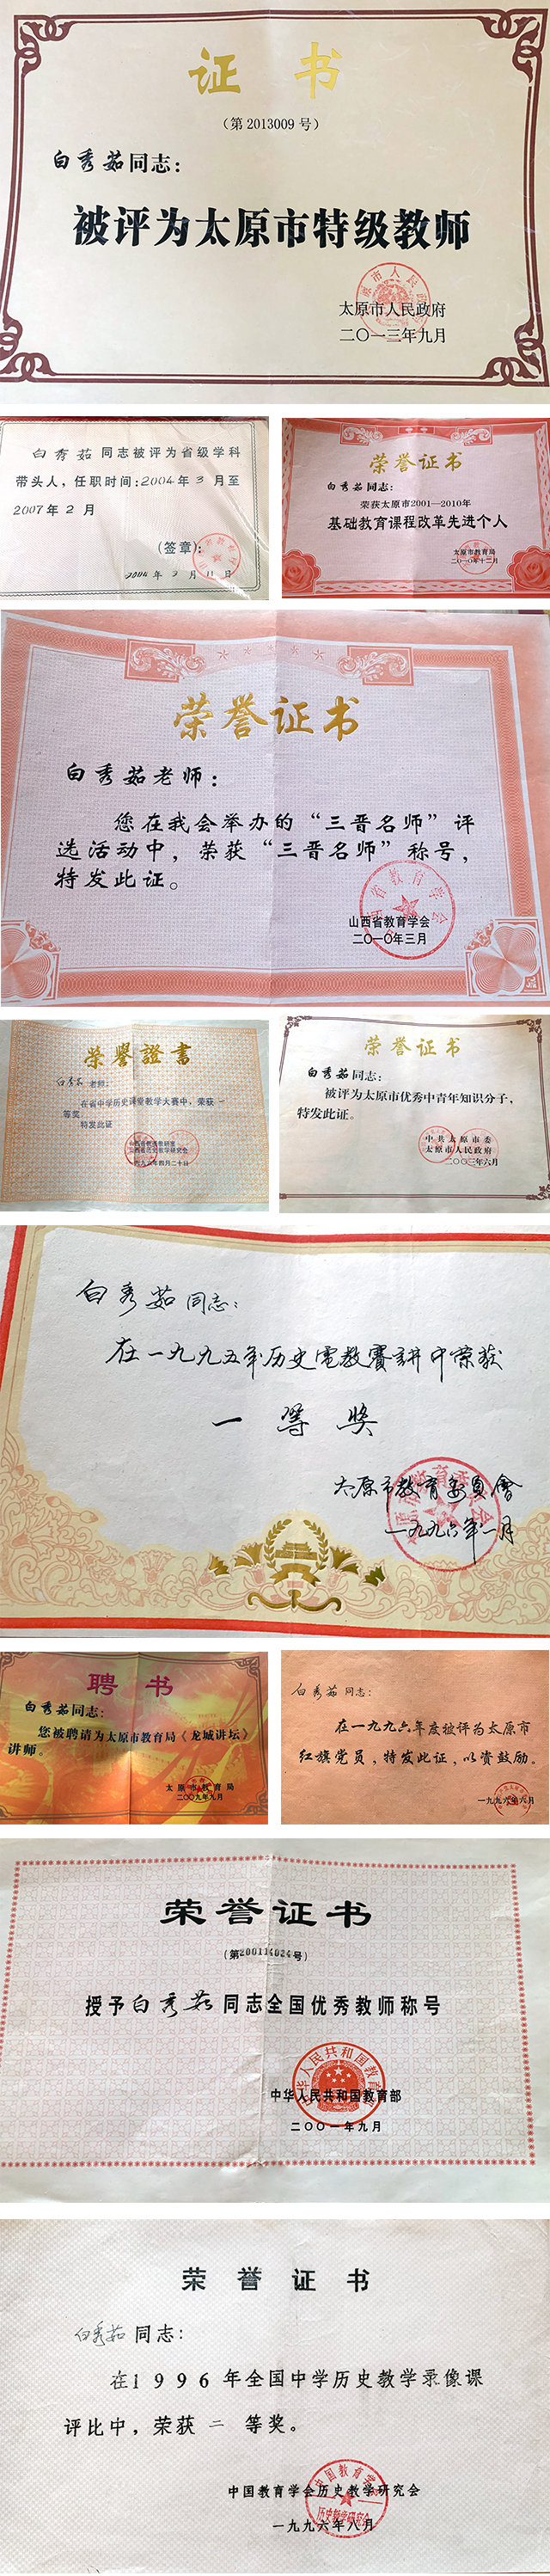 证 书
（第 2013009 号）
白秀茹同志：
被评为太原市特级教师
太原市人民政府
二〇一三年九月
白秀茹 同志被评为省级学科
带头人，任职时间：2004年 3 月至
2007年 2 月
（签章）：
2004 年 3 月 11 日
荣誉证书
白秀茹同志：
荣获太原市2001—2010年
基础教育课程改革先进个人
太原市教育局
二〇一〇年十二月
荣誉证书
白秀茹老师：
您在我会举办的“三晋名师”评
选活动中，荣获“三晋名师”称号，
特发此证。
山西省教育学会
二〇一〇年三月
荣譽證書
白秀茹 老师：
在省中学历史课堂教学大赛中，荣获 一
等奖
特发此证
荣誉证书
白秀茹同志：
被评为太原市优秀中青年知识分子，
特发此证。
中共太原市委
太原市人民政府
二〇〇三年六月
白秀茹同志：
在一九九五年历史电教赛讲中荣获
一等奖
太原市教育委员會
一九九六年一月
聘 书
白秀茹同志：
您被聘请为太原市教育局《龙城讲坛》
讲师。
太原市教育局
二〇〇九年九月
白秀茹 同志：
在一九九六年度被评为太原市
红旗党员，特发此证，以资鼓励。
一九九六年六月
荣誉证书
（第200114024号）
授予白秀茹同志全国优秀教师称号
中华人民共和国教育部
二〇〇一年九月
荣誉证书
白秀茹 同志：
在1996年全国中学历史教学录像课
评比中，荣获 二 等奖。
中国教育学会历史教学研究会
一九九六年八月